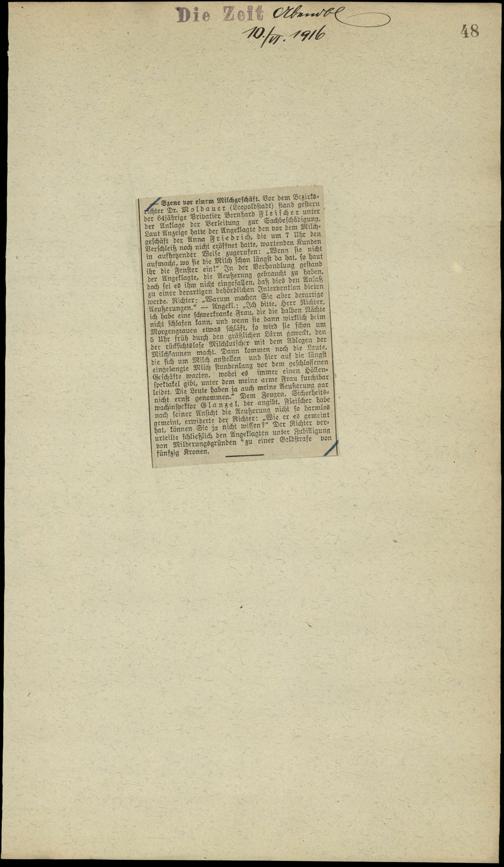 Die Zeit Abendbl
10./VI. 1916
48
— Szene vor einem Milchgeschäft. Vor dem Bezirks-
richter Dr. Moldauer (Leopoldstadt) stand gestern
der 64jährige Privatier Bernhard Fleischer unter
der Anklage der Verleitung zur Sachbeschädigung.
Laut Anzeige hatte der Angeklagte den vor dem Milch-
geschäft der Anna Friedrich, die um 7 Uhr den
Verschleiß noch nicht eröffnet hatte, wartenden Kunden
in aufhetzender Weise zugerufen: „Wenn sie nicht
aufmacht, wo sie die Milch schon längst da hat, so haut
ihr die Fenster ein!" In der Verhandlung gestand
der Angeklagte, die Aeußerung gebraucht zu haben,
doch sei es ihm nicht eingefallen, daß dies den Anlaß
zu einer derartigen behördlichen Intervention bieten
werde. Richter: „Warum machen Sie aber derartige
Aeußerungen." — Angekl.: „Ich bitte, Herr Richter,
ich habe eine schwerkranke Frau, die die halben Nächte
nicht schlafen kann, und wenn sie dann wirklich beim
Morgengrauen etwas schläft, so wird sie schon um
5 Uhr früh durch den grässlichen Lärm geweckt, den
der rücksichtslose Milchkutscher mit dem Abladen der
Milchkannen macht. Dann kommen noch die Leute,
die sich um Milch anstellen und hier auf die längst
eingelangte Milch stundenlang vor dem geschlossenen
Geschäfte warten, wobei es immer einen Höllen-
spektakel gibt, unter dem meine arme Frau furchtbar
leidet. Die Leute haben ja auch meine Aeußerung gar
nicht ernst genommen." Dem Zeugen, Sicherheits-
wachinspektor Glanzel, der angibt, Fleischer habe
nach seiner Ansicht die Aeußerung nicht so harmlos
gemeint, erwiderte der Richter: „Wie er es gemeint
hat, können Sie ja nicht wissen!" Der Richter ver-
urteilte schließlich den Angeklagten unter Zubilligung
von Milderungsgründen zu einer Geldstrafe von
fünfzig Kronen.